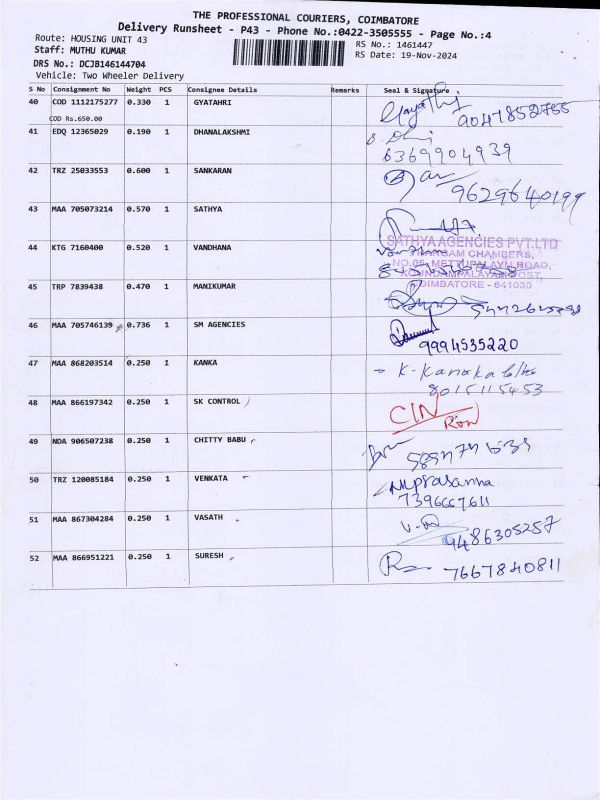 THE PROFESSIONAL COURIERS, COIMBATORE
Delivery Runsheet - P43 - Phone No.:0422-3505555 - Page No.:4
Route: HOUSING UNIT 43
RS No.: 1461447
Staff: MUTHU KUMAR
RS Date: 19-Nov-2024
DRS No.: DCJB146144704
Vehicle: Two Wheeler Delivery
S No Consignment No Weight PCS Consignee Details Remarks Seal & Signature
40 COD 1112175277 0.330 1 GYATAHRI Gayathri
COD Rs.650.00 9047852755
41 EDQ 12365029 0.190 1 DHANALAKSHMI
6369904939
42 TRZ 25033553 0.600 1 SANKARAN
9629640199
43 MAA 705073214 0.570 1 SATHYA
SATHYA AGENCIES PVT.LTD
44 KTG 7160400 0.520 1 VANDHANA
CHAMBERS,
NO.05, METTUPALAYAM ROAD,
45 TRP 7839438 0.470 1 MANIKUMAR
COIMBATORE - 641030
46 MAA 705746139 0.736 1 SM AGENCIES
9994535220
47 MAA 868203514 0.250 1 KANKA
8015115453
48 MAA 866197342 0.250 1 SK CONTROL
49 NDA 906507238 0.250 1 CHITTY BABU
50 TRZ 120085184 0.250 1 VENKATA
7396667611
51 MAA 867304284 0.250 1 VASATH
9486305257
52 MAA 866951221 0.250 1 SURESH
7667840811